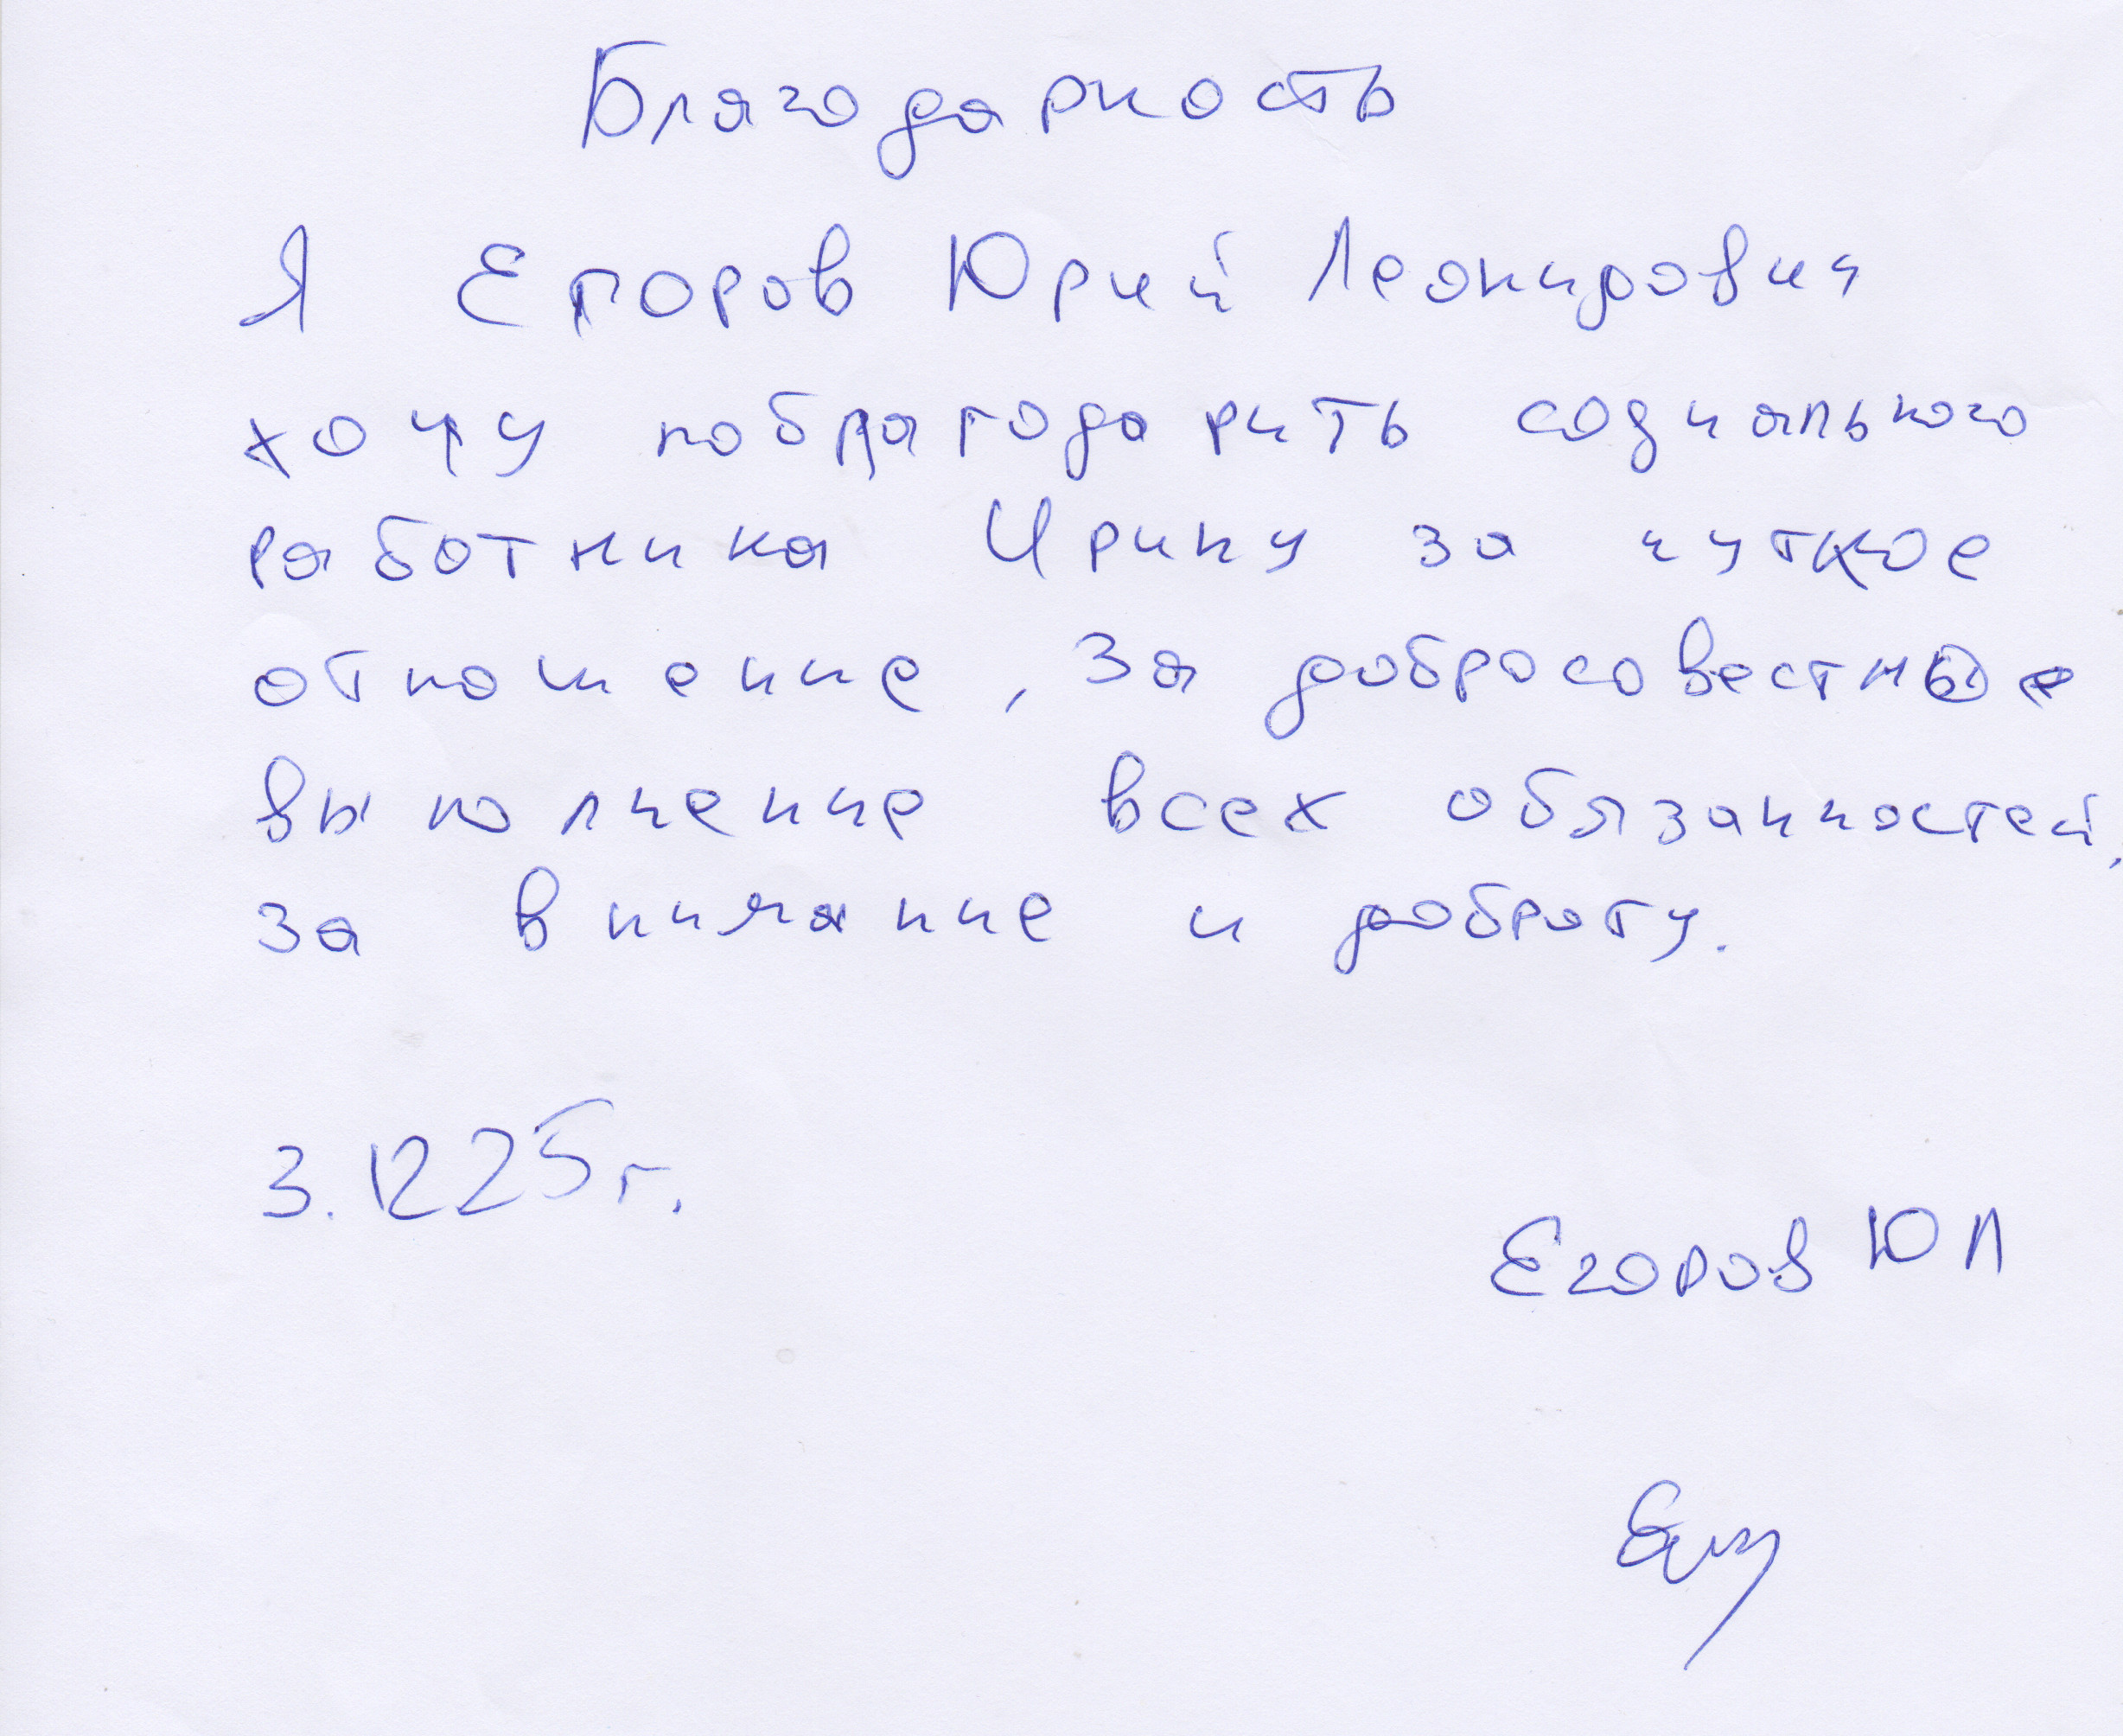 Благодарность
Я Егоров Юрий Леонидович
хочу поблагодарить социального
работника Ирину за чуткое
отношение, за добросовестные
выполнение всех обязанностей,
за внимание и доброту.
3.12 25 г.
Егоров ЮЛ